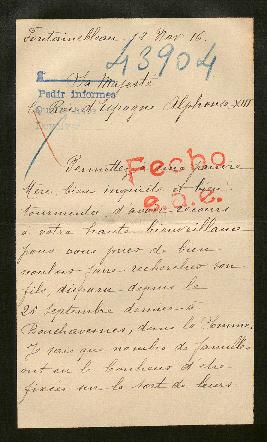 Fontainebleau 12 Nov 16.
43904
A Sa Majesté
Pedir informes
Le Roi d'Espagne Alphonse XIII
Permettez à une pauvre
Fecho
mère bien inquiète et bien
tourmentée d'avoir recours
s.a.e.
à votre haute bienveillance
pour vous prier de bien
vouloir faire rechercher son
fils, disparu depuis le
25 Septembre dernier à
Bouchavesnes, dans la Somme.
Je sais que nombre de familles
ont eu le bonheur d'être
fixées sur le sort de leurs